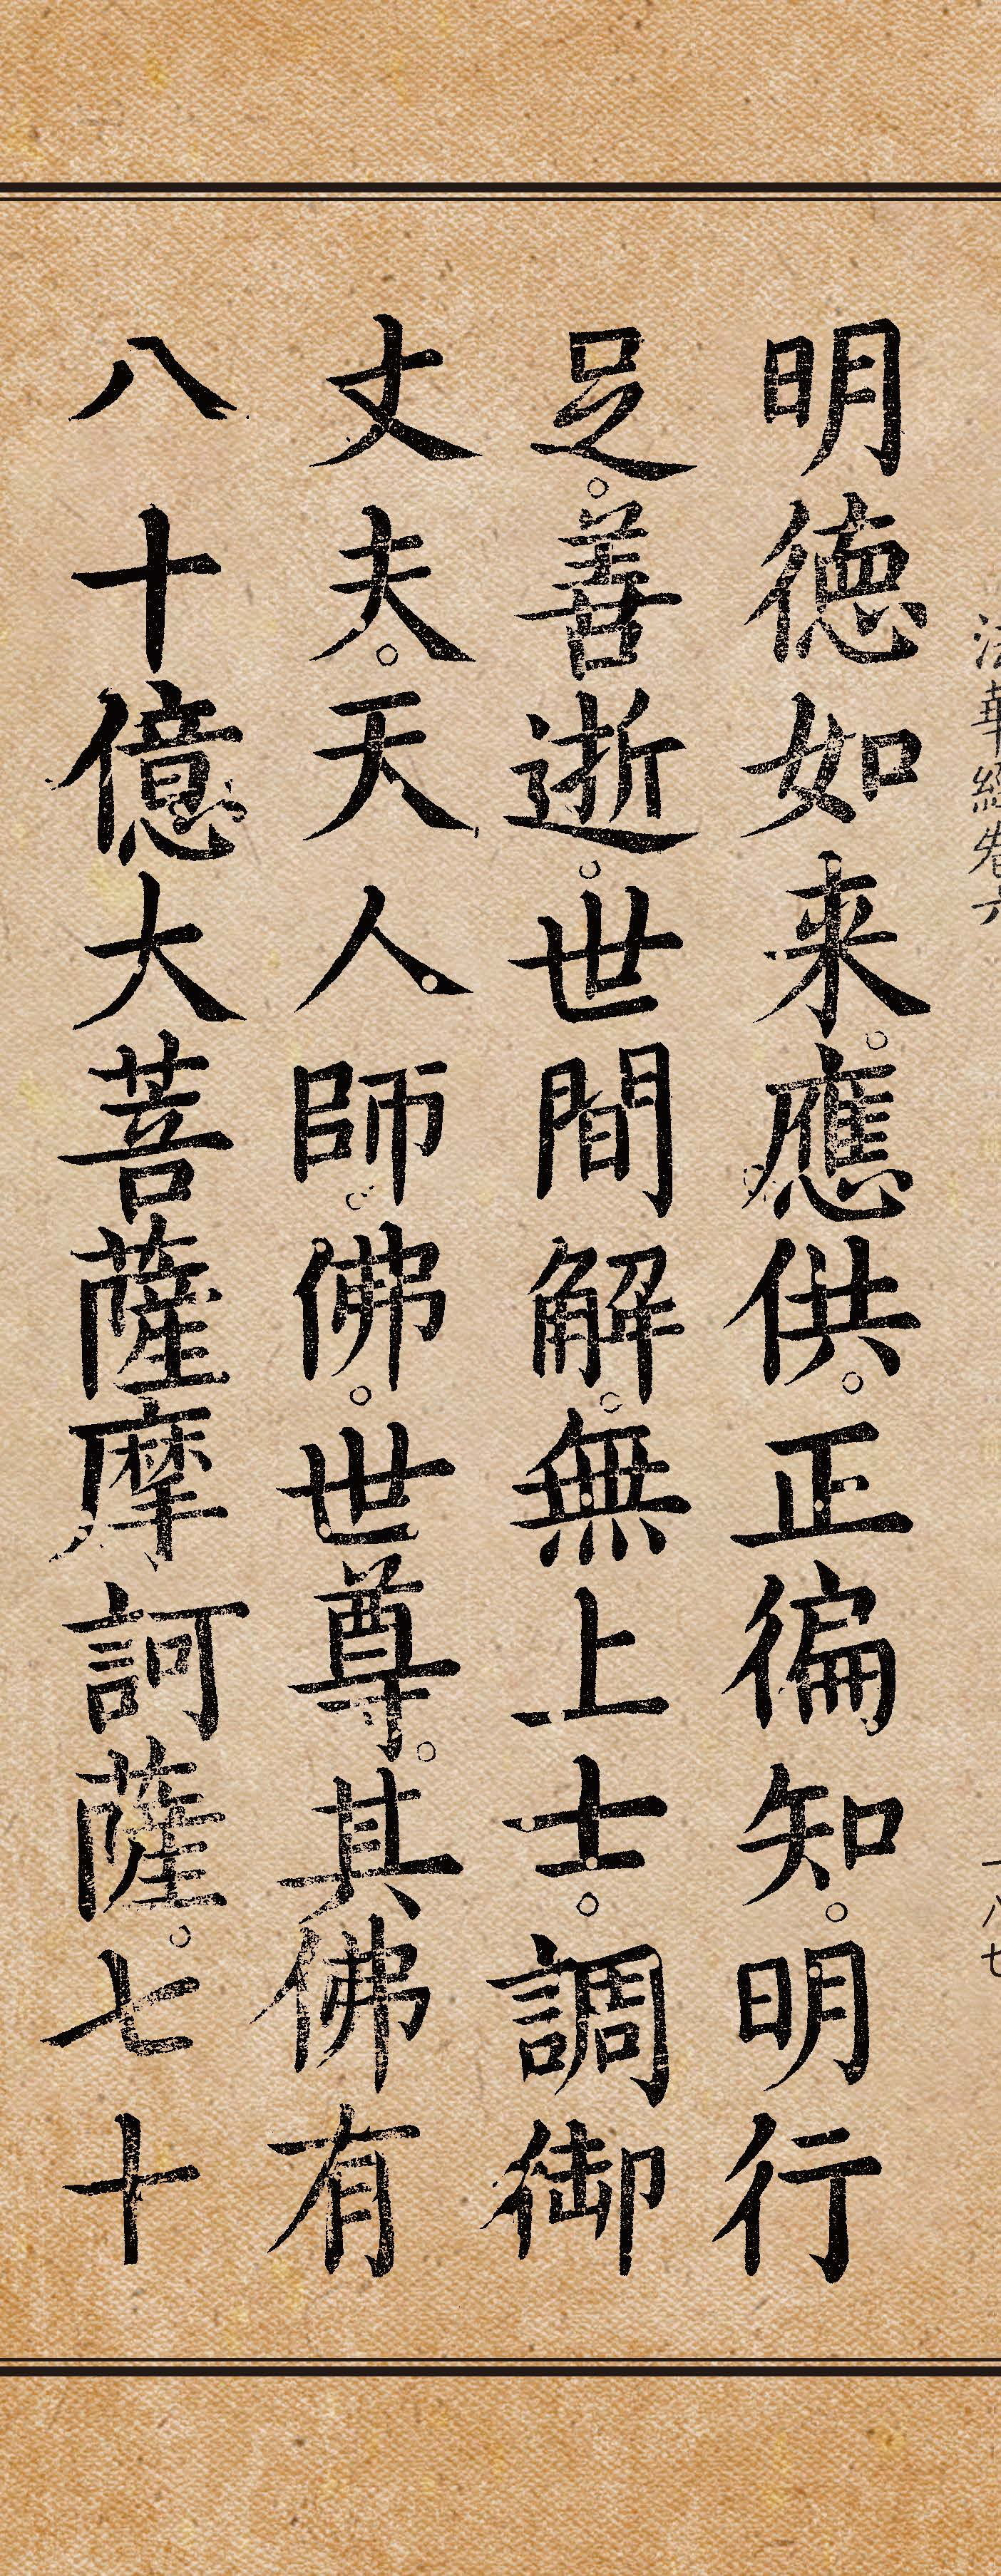 法華經卷六
一八七
明德如来。應供。正徧知。明行
足。善逝。世間解。無上士。調御
丈夫。天人師。佛。世尊。其佛有
八十億大菩薩摩訶薩。七十